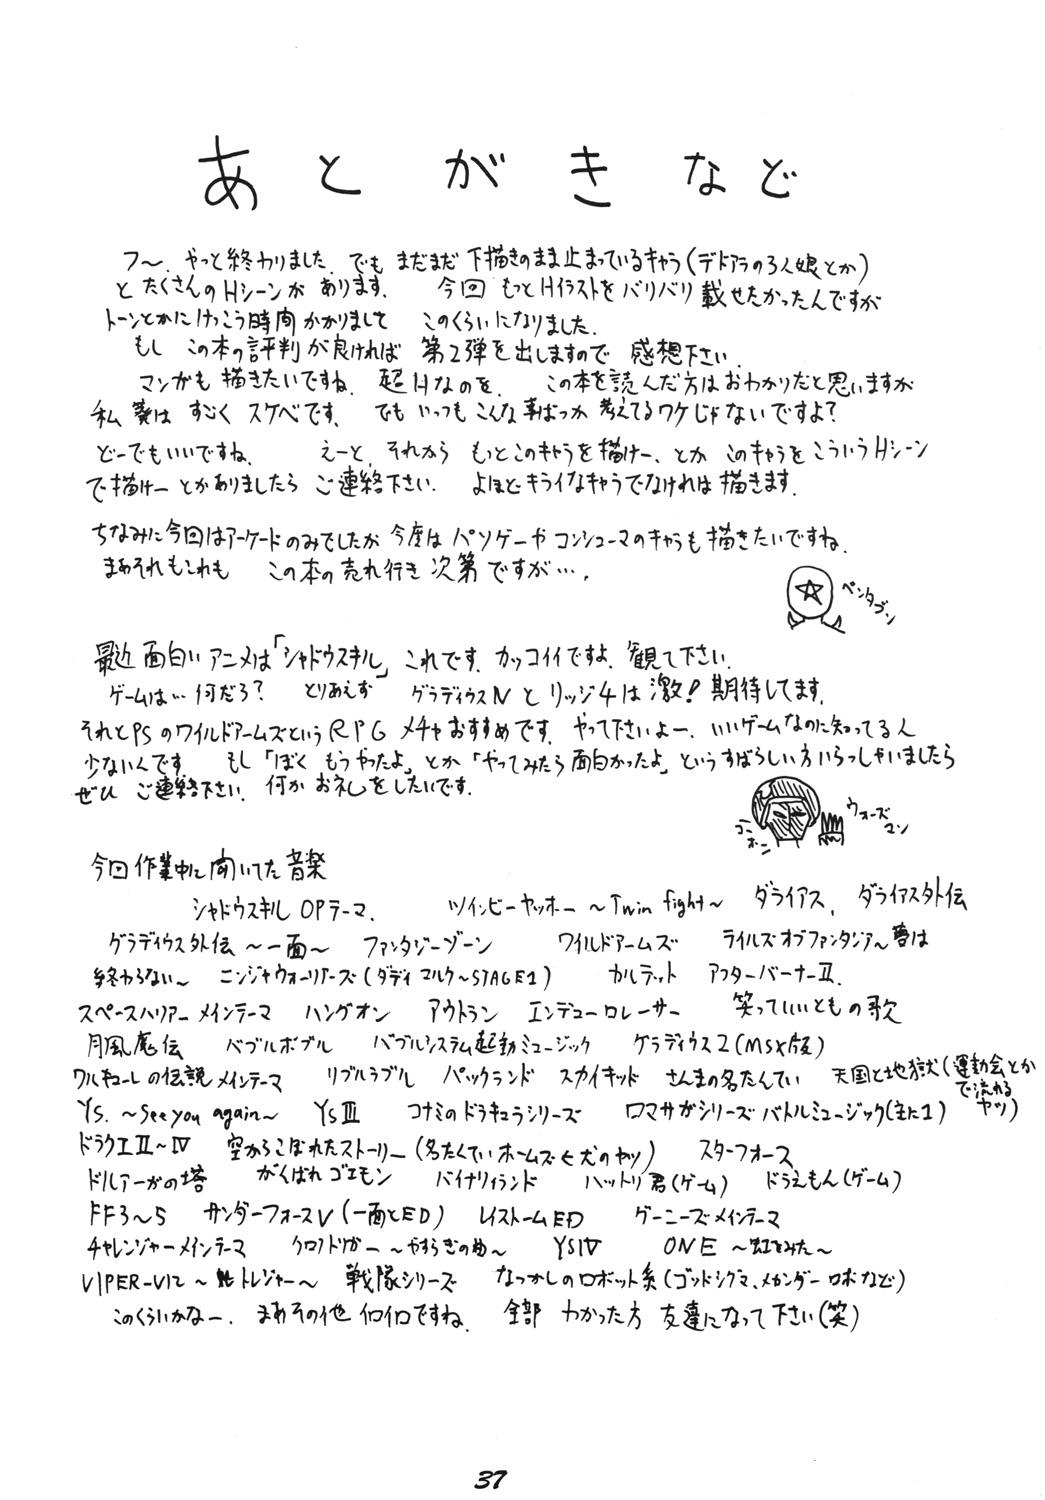 あとがきなど
フ〜、やっと終わりました。でも まだまだ 下描きのまま止まっているキャラ(デドアラの3人娘とか)
と たくさんのHシーンが あります。 今回 もっとHイラストをバリバリ載せたかったんですが
トーンとかにけっこう時間かかりまして このくらいになりました。
もし この本の評判が良ければ 第2弾を出しますので 感想下さい。
マンガも 描きたいですね、超Hなのを。 この本を読んだ方はおわかりだと思いますが
私 はすごく スケベです。 でも いっつもこんな事ばっか 考えてるワケじゃないですよ?
どーでもいいですね。 えーと、それから もっとこのキャラを描けー、とか このキャラをこういうHシーン
で描けー とかありましたら ご連絡下さい。 よほどキライなキャラでなければ描きます。
ちなみに今回はアーケードのみでしたが 今度は パソゲーや コンシューマのキャラも描きたいですね。
まあそれもこれも この本の売れ行き次第ですが…。
ペンタゴン
最近面白いアニメは「シャドウスキル」これです。カッコイイですよ、観て下さい。
ゲームは…何だろ? とりあえず グラディウスⅣ と リッジ4は 激!期待してます。
それとPSのワイルドアームズというRPG メチャおすすめです。やって下さいよー、いいゲームなのに知ってる人
少ないんです。 もし「ぼく もうやったよ」とか「やってみたら面白かったよ」というすばらしい方いらっしゃいましたら
ぜひ ご連絡下さい。何か お礼をしたいです。
コーホー
ウォーズマン
今回作業中に聞いてた音楽
シャドウスキルOPテーマ、 ツインビーヤッホー 〜Twin fight〜 ダライアス、 ダライアス外伝
グラディウス外伝 〜一面〜 ファンタジーゾーン ワイルドアームズ テイルズオブファンタジア〜夢は
終わらない〜 ニンジャウォーリアーズ(ダディマルク〜STAGE1) カルテット アフターバーナーⅡ.
スペースハリアー メインテーマ ハングオン アウトラン エンデューローレーサー 笑っていいともの歌
月風魔伝 バブルボブル バブルシステム起動ミュージック グラディウス2(MSX版)
ワルキューレの伝説 メインテーマ リブルラブル パックランド スカイキッド さんまの名たんてい 天国と地獄(運動会とかで流れるヤツ)
Ys. 〜See you again〜 YsⅢ コナミのドラキュラシリーズ ロマサガシリーズ バトルミュージック(主に1)
ドラクエⅡ〜Ⅳ 空からこぼれたストーリー(名たんていホームズ犬のヤツ) スターフォース
ドルアーガの塔 がんばれゴエモン バイナリィランド ハットリ君(ゲーム) ドラえもん(ゲーム)
FF3〜5 サンダーフォースⅤ(一面とED) レイストームED グーニーズメインテーマ
チャレンジャーメインテーマ クロノトリガー 〜やすらぎの 〜 YSⅣ ONE 〜虹をみた〜
VIPER-V12 〜 トレジャー〜 戦隊シリーズ なつかしのロボット系(ゴッドシグマ、メカンダーロボなど)
このくらいかなー. まあその他 イロイロですね。 全部 わかった方 友達になって下さい(笑)
37